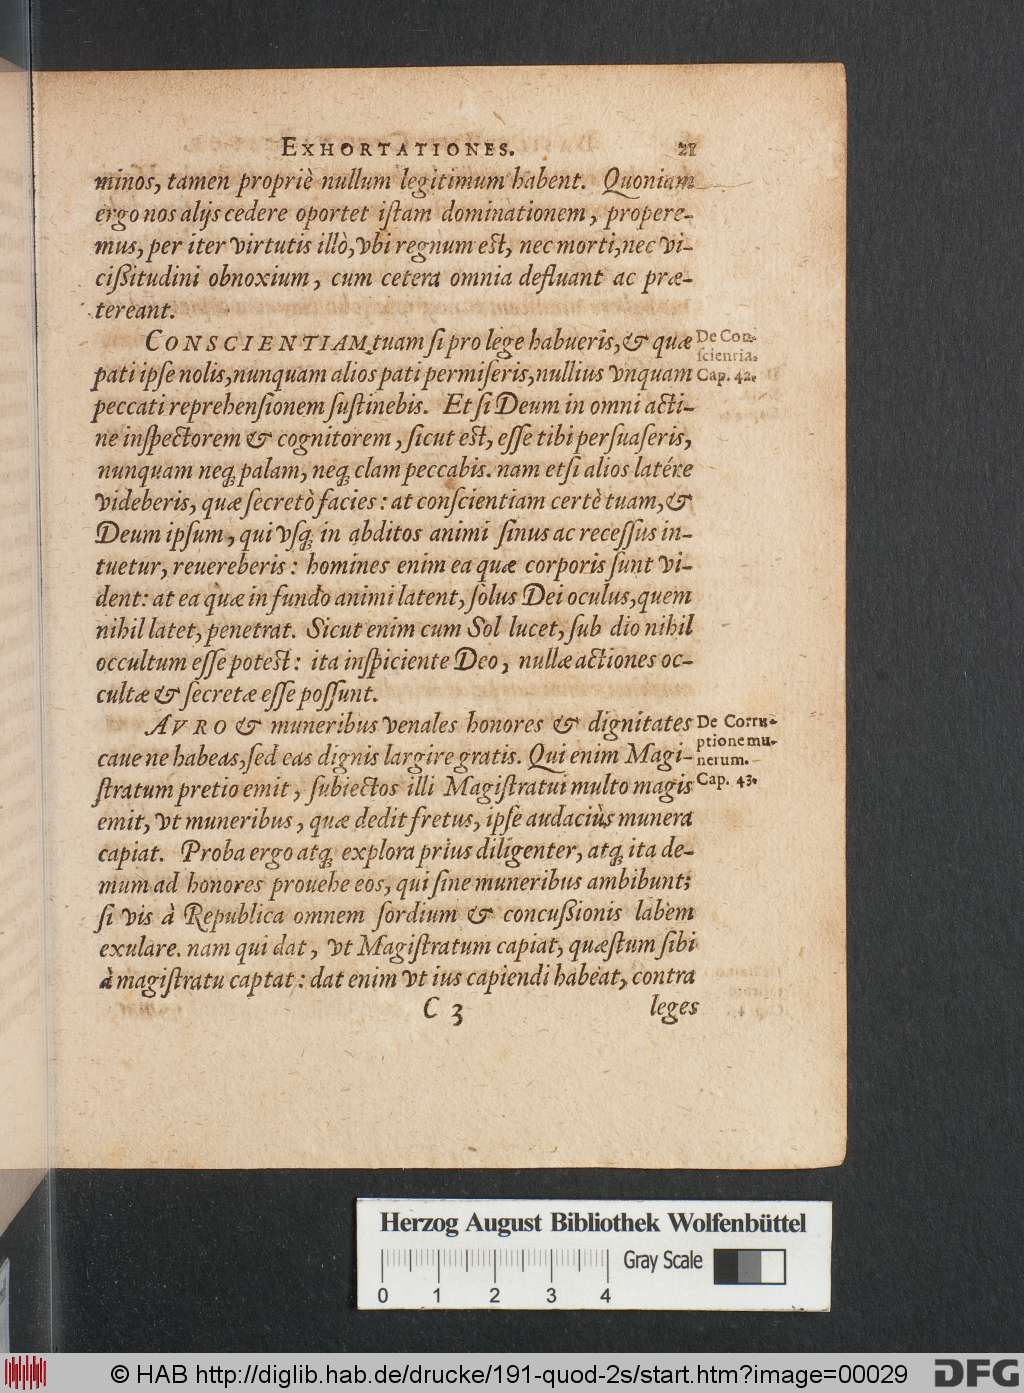 EXHORTATIONES. 21
minos, tamen propriè nullum legitimum habent. Quoniam
ergo nos alijs cedere oportet iſtam dominationem, propere-
mus, per iter virtutis illò, vbi regnum eſt, nec morti, nec vi-
cißitudini obnoxium, cum cetera omnia defluant ac præ-
tereant.
CONSCIENTIAM tuam ſi pro lege habueris, & quæ
De Con-
ſcientia.
Cap. 42.
pati ipſe nolis, nunquam alios pati permiſeris, nullius vnquam
peccati reprehenſionem ſuſtinebis. Et ſi Deum in omni acti-
ne inſpectorem & cognitorem, ſicut eſt, eſſe tibi perſuaſeris,
nunquam neq; palam, neq; clam peccabis. nam etſi alios latére
videberis, quæ ſecretò facies: at conſcientiam certè tuam, &
Deum ipſum, qui vſq; in abditos animi ſinus ac receſſus in-
tuetur, reuereberis: homines enim ea quæ corporis ſunt vi-
dent: at ea quæ in fundo animi latent, ſolus Dei oculus, quem
nihil latet, penetrat. Sicut enim cum Sol lucet, ſub dio nihil
occultum eſſe poteſt: ita inſpiciente Deo, nullæ actiones oc-
cultæ & ſecretæ eſſe poſſunt.
AVRO & muneribus venales honores & dignitates
De Corru-
ptione mu-
nerum.
Cap. 43.
caue ne habeas, ſed eas dignis largire gratis. Qui enim Magi-
ſtratum pretio emit, ſubiectos illi Magiſtratui multo magis
emit, vt muneribus, quæ dedit fretus, ipſe audaciùs munera
capiat. Proba ergo atq; explora prius diligenter, atq; ita de-
mum ad honores prouehe eos, qui ſine muneribus ambibunt;
ſi vis à Republica omnem ſordium & concußionis labem
exulare. nam qui dat, vt Magiſtratum capiat, quæſtum ſibi
à magiſtratu captat: dat enim vt ius capiendi habeat, contra
C 3 leges
Herzog August Bibliothek Wolfenbüttel
Gray Scale
0 1 2 3 4
© HAB http://diglib.hab.de/drucke/191-quod-2s/start.htm?image=00029
DFG